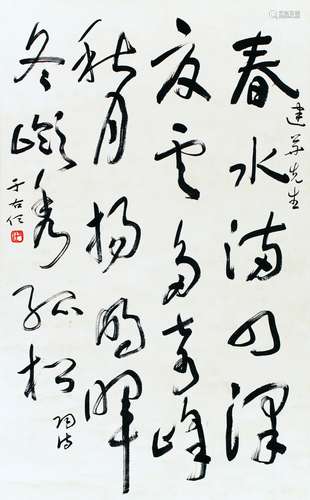 建華先生
春水滿四澤
夏雲多奇峰
秋月揚明暉
冬嶺秀孤松 陶詩
于右任